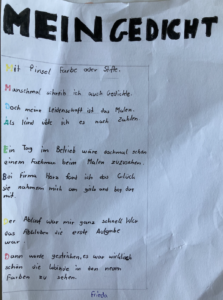 MEIN GEDICHT
Mit Pinsel Farbe oder Stifte.
Manschmal schreib ich auch Gedichte.
Doch meine Leidenschaft ist das Malen.
Als Kind übte ich es nach Zahlen.
Ein Tag im Betrieb wäre nochmal schön
einem Fachman beim Malen zuzusehen.
Bei Firma Horn fand ich das Glück
sie nahmen mich von
Der Ablauf war mir ganz schnell klar
das Abkleben die erste Aufgabe
war
Dann wurde gestrichen, es war wirklich
schön die Wände in den neuen
Farben zu sehen.
Frieda